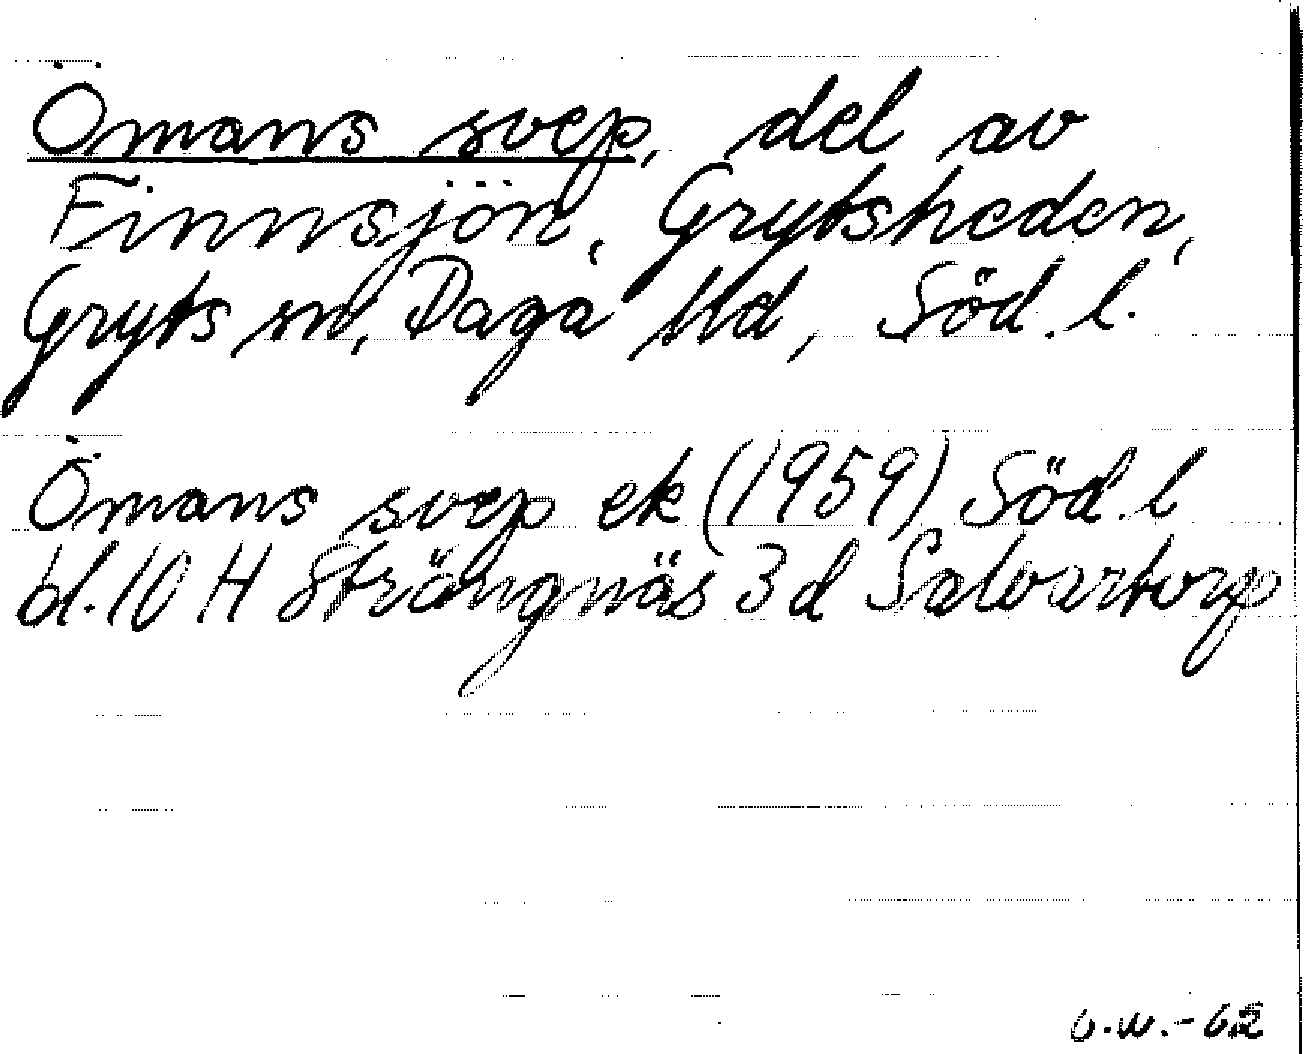 Ömans svep, del av
Finnsjön, Grytsheden,
Gryts sn, Daga Hd, Söd. l.
Ömans svep ek (1959) Söd. l
bl. 10 H Strängnäs 3 d Salvartorp
G.W.-62